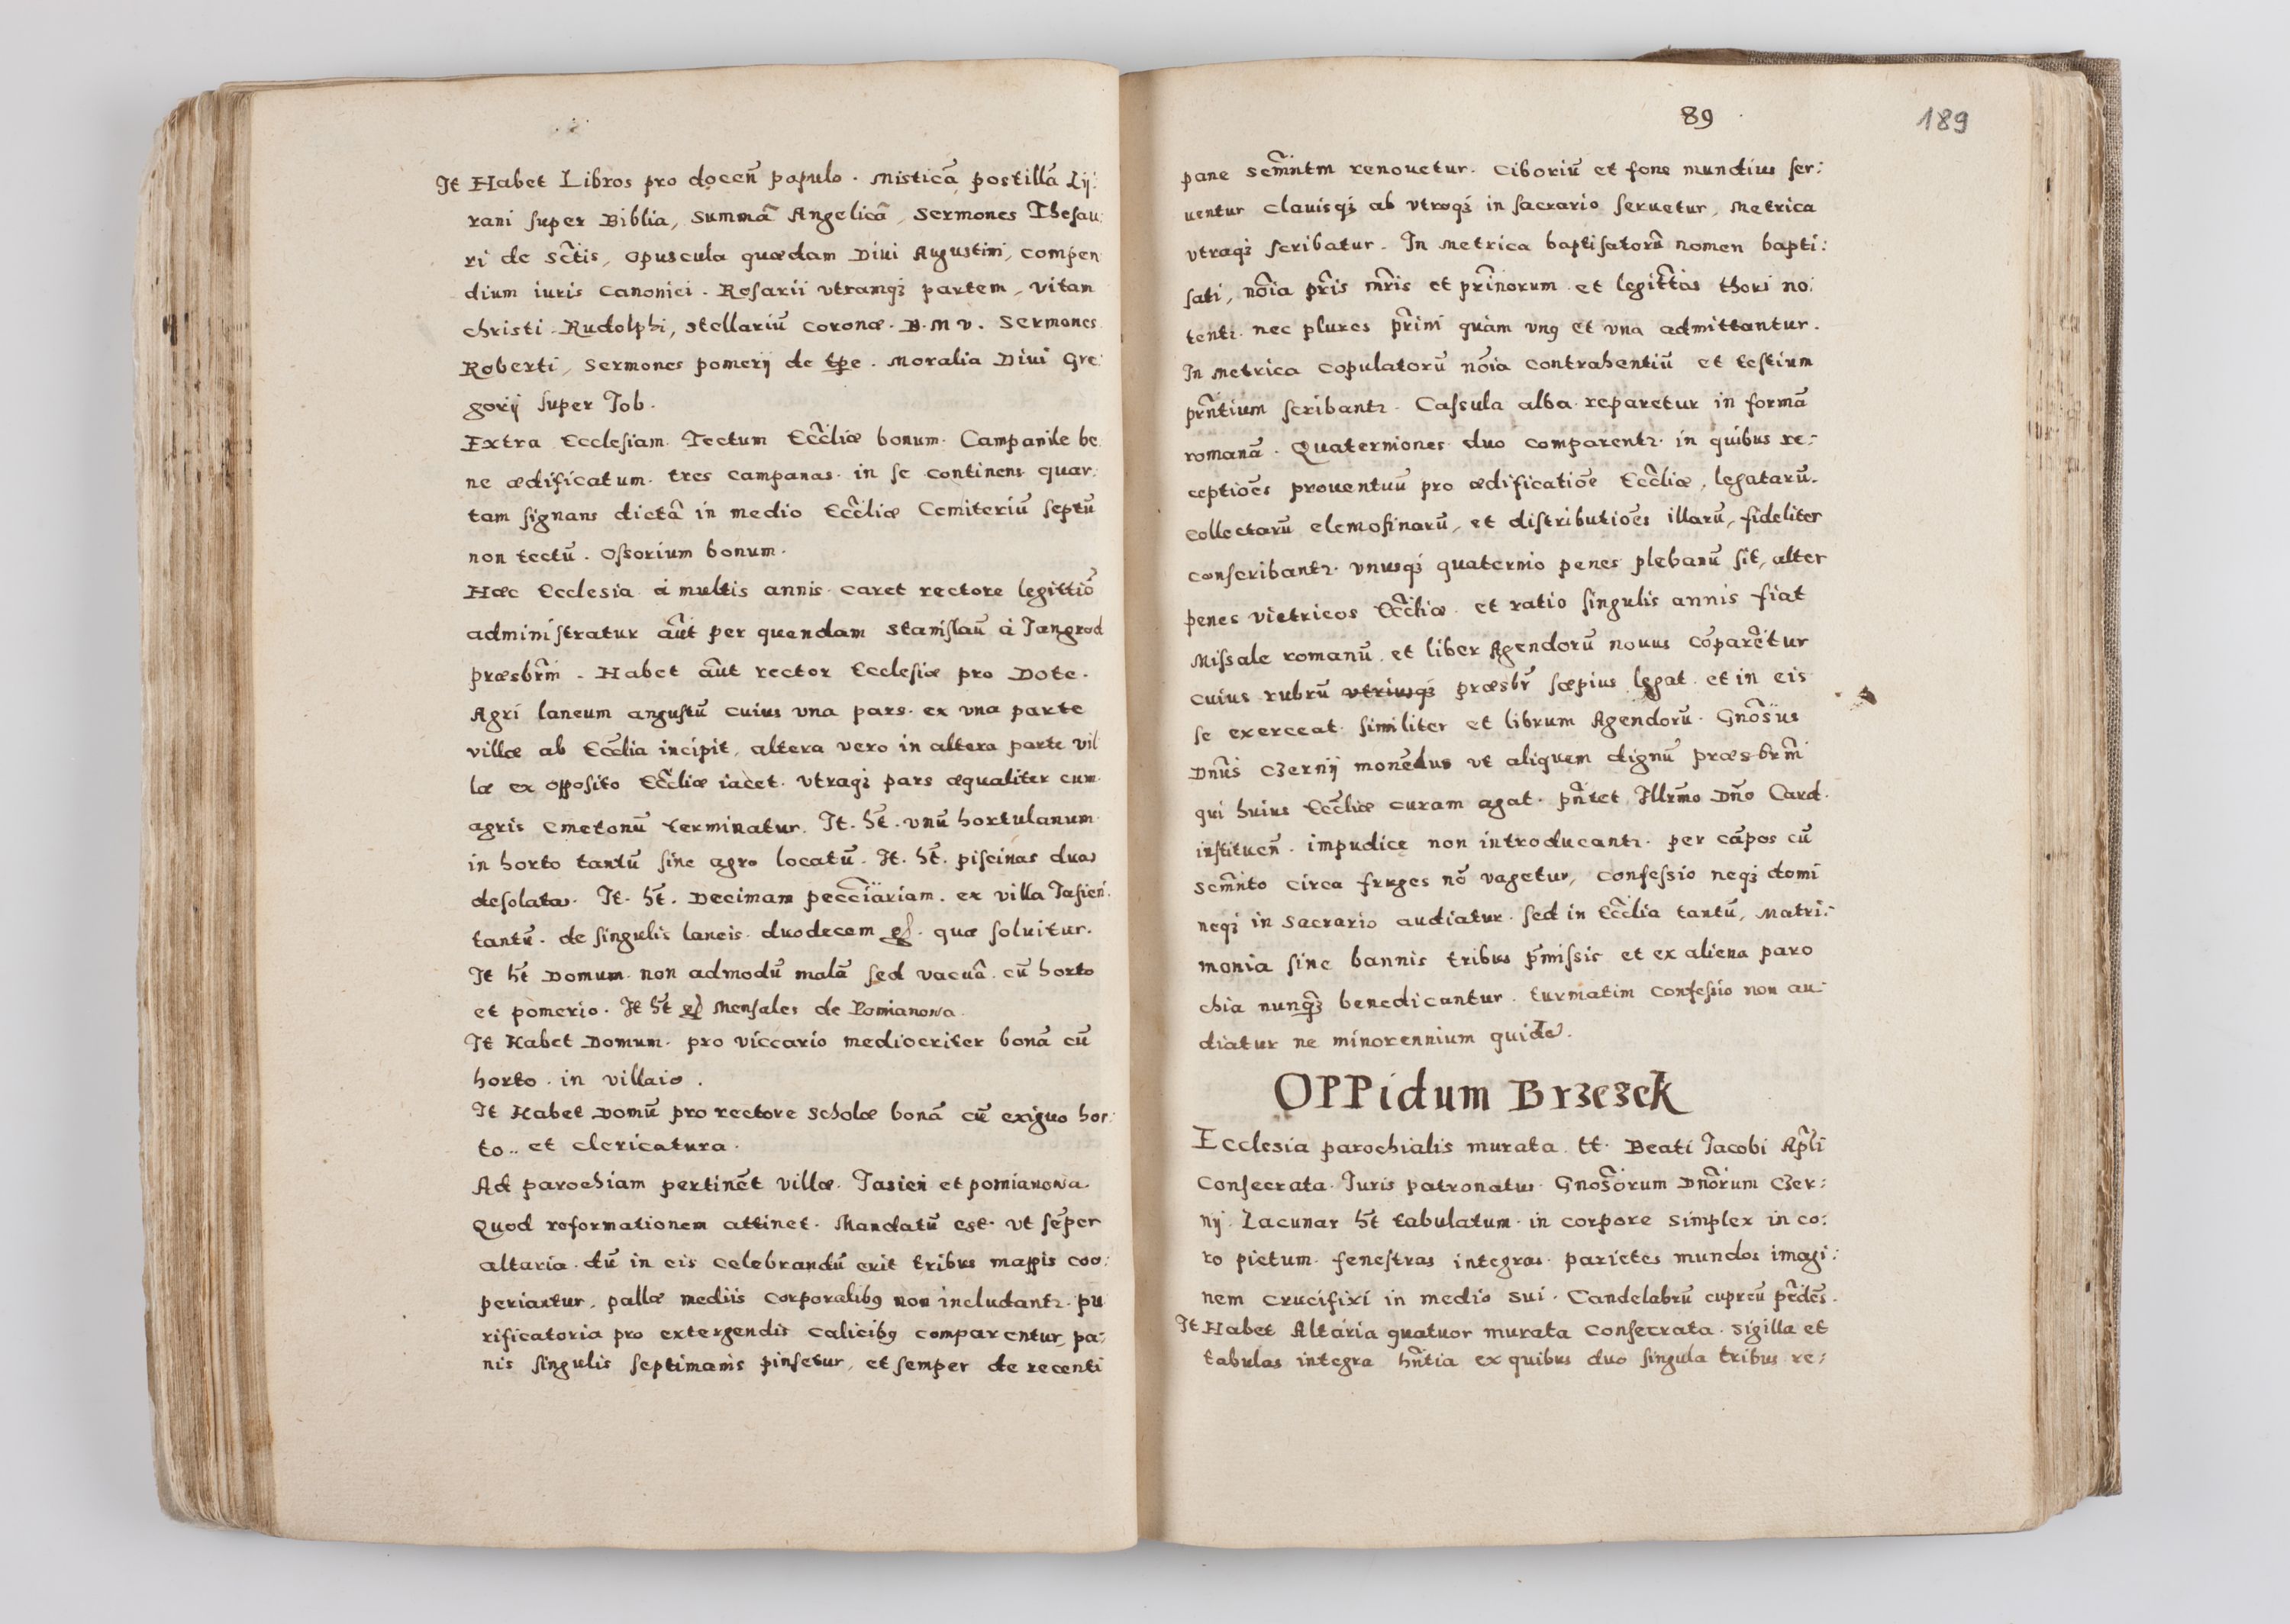 It Habet Libros pro docen̄ populo. Misticā postillā Lij:
rani super Biblia, Summā Angelicā, Sermones Thesau:
ri de Sc̄tis, Opuscula quædam Diui Augustini, Compen
dium iuris Canonici. Rosarii vtramqꝫ partem, Vitam
Christi Rudolphi, Stellariū Coronæ. B. M V. Sermones
Roberti, Sermones pomerij de tp̄e. Moralia Diui Gre:
gorij super Iob.
Extra Ecclesiam. Tectum Eccl̄iæ bonum. Campanile be
ne ædificatum. tres campanas. in se continens quar:
tam signans dictā in medio Eccl̄iæ Cemiteriū septū
non tectū. Ossorium bonum.
Hæc Ecclesia à multis annis caret rectore legittiō
administratur aūt per quendam Stanislaū à Iangrod
præsbr̄m. Habet aūt rector Ecclesiæ pro Dote.
Agri laneum angustū cuius vna pars ex vna parte
villæ ab Eccl̄ia incipit, altera vero in altera parte vil
læ ex opposito Eccl̄iæ iacet. vtraqꝫ pars æqualiter cum
agris cmetonū terminatur. It. h̄t. vnū hortulanum
in horto tantū sine agro locatū. It. h̄t. piscinas duas
desolatas. It. h̄t. Decimam pecc̄iariam. ex villa Iasień.
tantū. de singulis laneis duodecem gſ. quæ soluitur.
It h̄t Domum non admodū malā sed vacuā. cū horto
et pomerio. It h̄t gſ Mensales de Pomianowa.
It Habet Domum. pro viccario mediocriter bonā cū
horto. in villaio.
It Habet Domū pro rectore Scholæ bonā cū exiguo hor:
to.. et clericatura.
Ad parochiam pertinēt villæ. Iasień et pomianowa.
Quod reformationem attinet. Mandatū est. vt sēper
altaria. dū in eis celebrandū erit tribus mappis coo:
periantur, pallæ mediis corporalibꝰ non includantꝛ. pu
rificatoria pro extergendis calicibꝰ comparentur, pa:
nis singulis septimanis pinsetur, et semper de recenti
89
189
pane sc̄mntm renouetur. Ciboriū et fons mundius ser:
uentur Clauisqꝫ ab vtroqꝫ in sacrario seruetur, Metrica
vtraqꝫ scribatur. In Metrica baptisatorū nomen bapti:
sati, nōia pr̄is mr̄is et pr̄inorum et legitt̄as thori no:
tentꝛ. nec plures pr̄ini quàm vnꝰ et vna admittantur.
In Metrica Copulatorū nōia contrahentiū et testium
prn̄tium scribantꝛ. Casula alba reparetur in formā
romanā. Quaterniones duo comparentꝛ. in quibus re:
ceptiōes prouentuū pro ædificatiōe Eccl̄iæ, legatarū.
Collectarū elemosinarū, et distributiōes illarū, fideliter
conscribantꝛ. vnusqꝫ quaternio penes plebanū sit, alter
penes vietricos Eccl̄iæ. et ratio singulis annis fiat
Missale romanū. et liber Agendorū nouus cōparētur
cuius rubrū vtriusqꝫ præsbr̄ sæpius legat. et in eis
se exerceat. similiter et librum Agendorū. Gnōsus
Dnūs Czernij monēdus vt aliquem dignū præsbrm̄
qui huius Eccl̄iæ curam agat. pn̄tet Illrm̄o Dn̄o Card.
instituen̄. impudicę non introducantꝛ. per cāpos cū
Scm̄nto circa fruges nō vagetur, confessio neqꝫ domi
neqꝫ in Sacrario audiatur. sed in Eccl̄ia tantū, Matri:
monia sine bannis tribus p̄missis et ex aliena paro
chia nunqꝫ benedicantur. turmatim confessio non au:
diatur ne minorennium quidē.
OPPidum Brzezek
Ecclesia parochialis murata. tt. Beati Iacobi Ap̄li
Consecrata. Iuris patronatus. Gnos̄orum Dnōrum Czer:
nij. Lacunar h̄t tabulatum. in corpore simplex in co:
ro pictum. fenestras integras. parietes mundos imagi:
nem crucifixi in medio sui. Candelabrū cupreū pēdēs.
It Habet Altaria quatuor murata Consecrata. sigilla et
tabulas integra hn̄tia ex quibus duo singula tribus re: